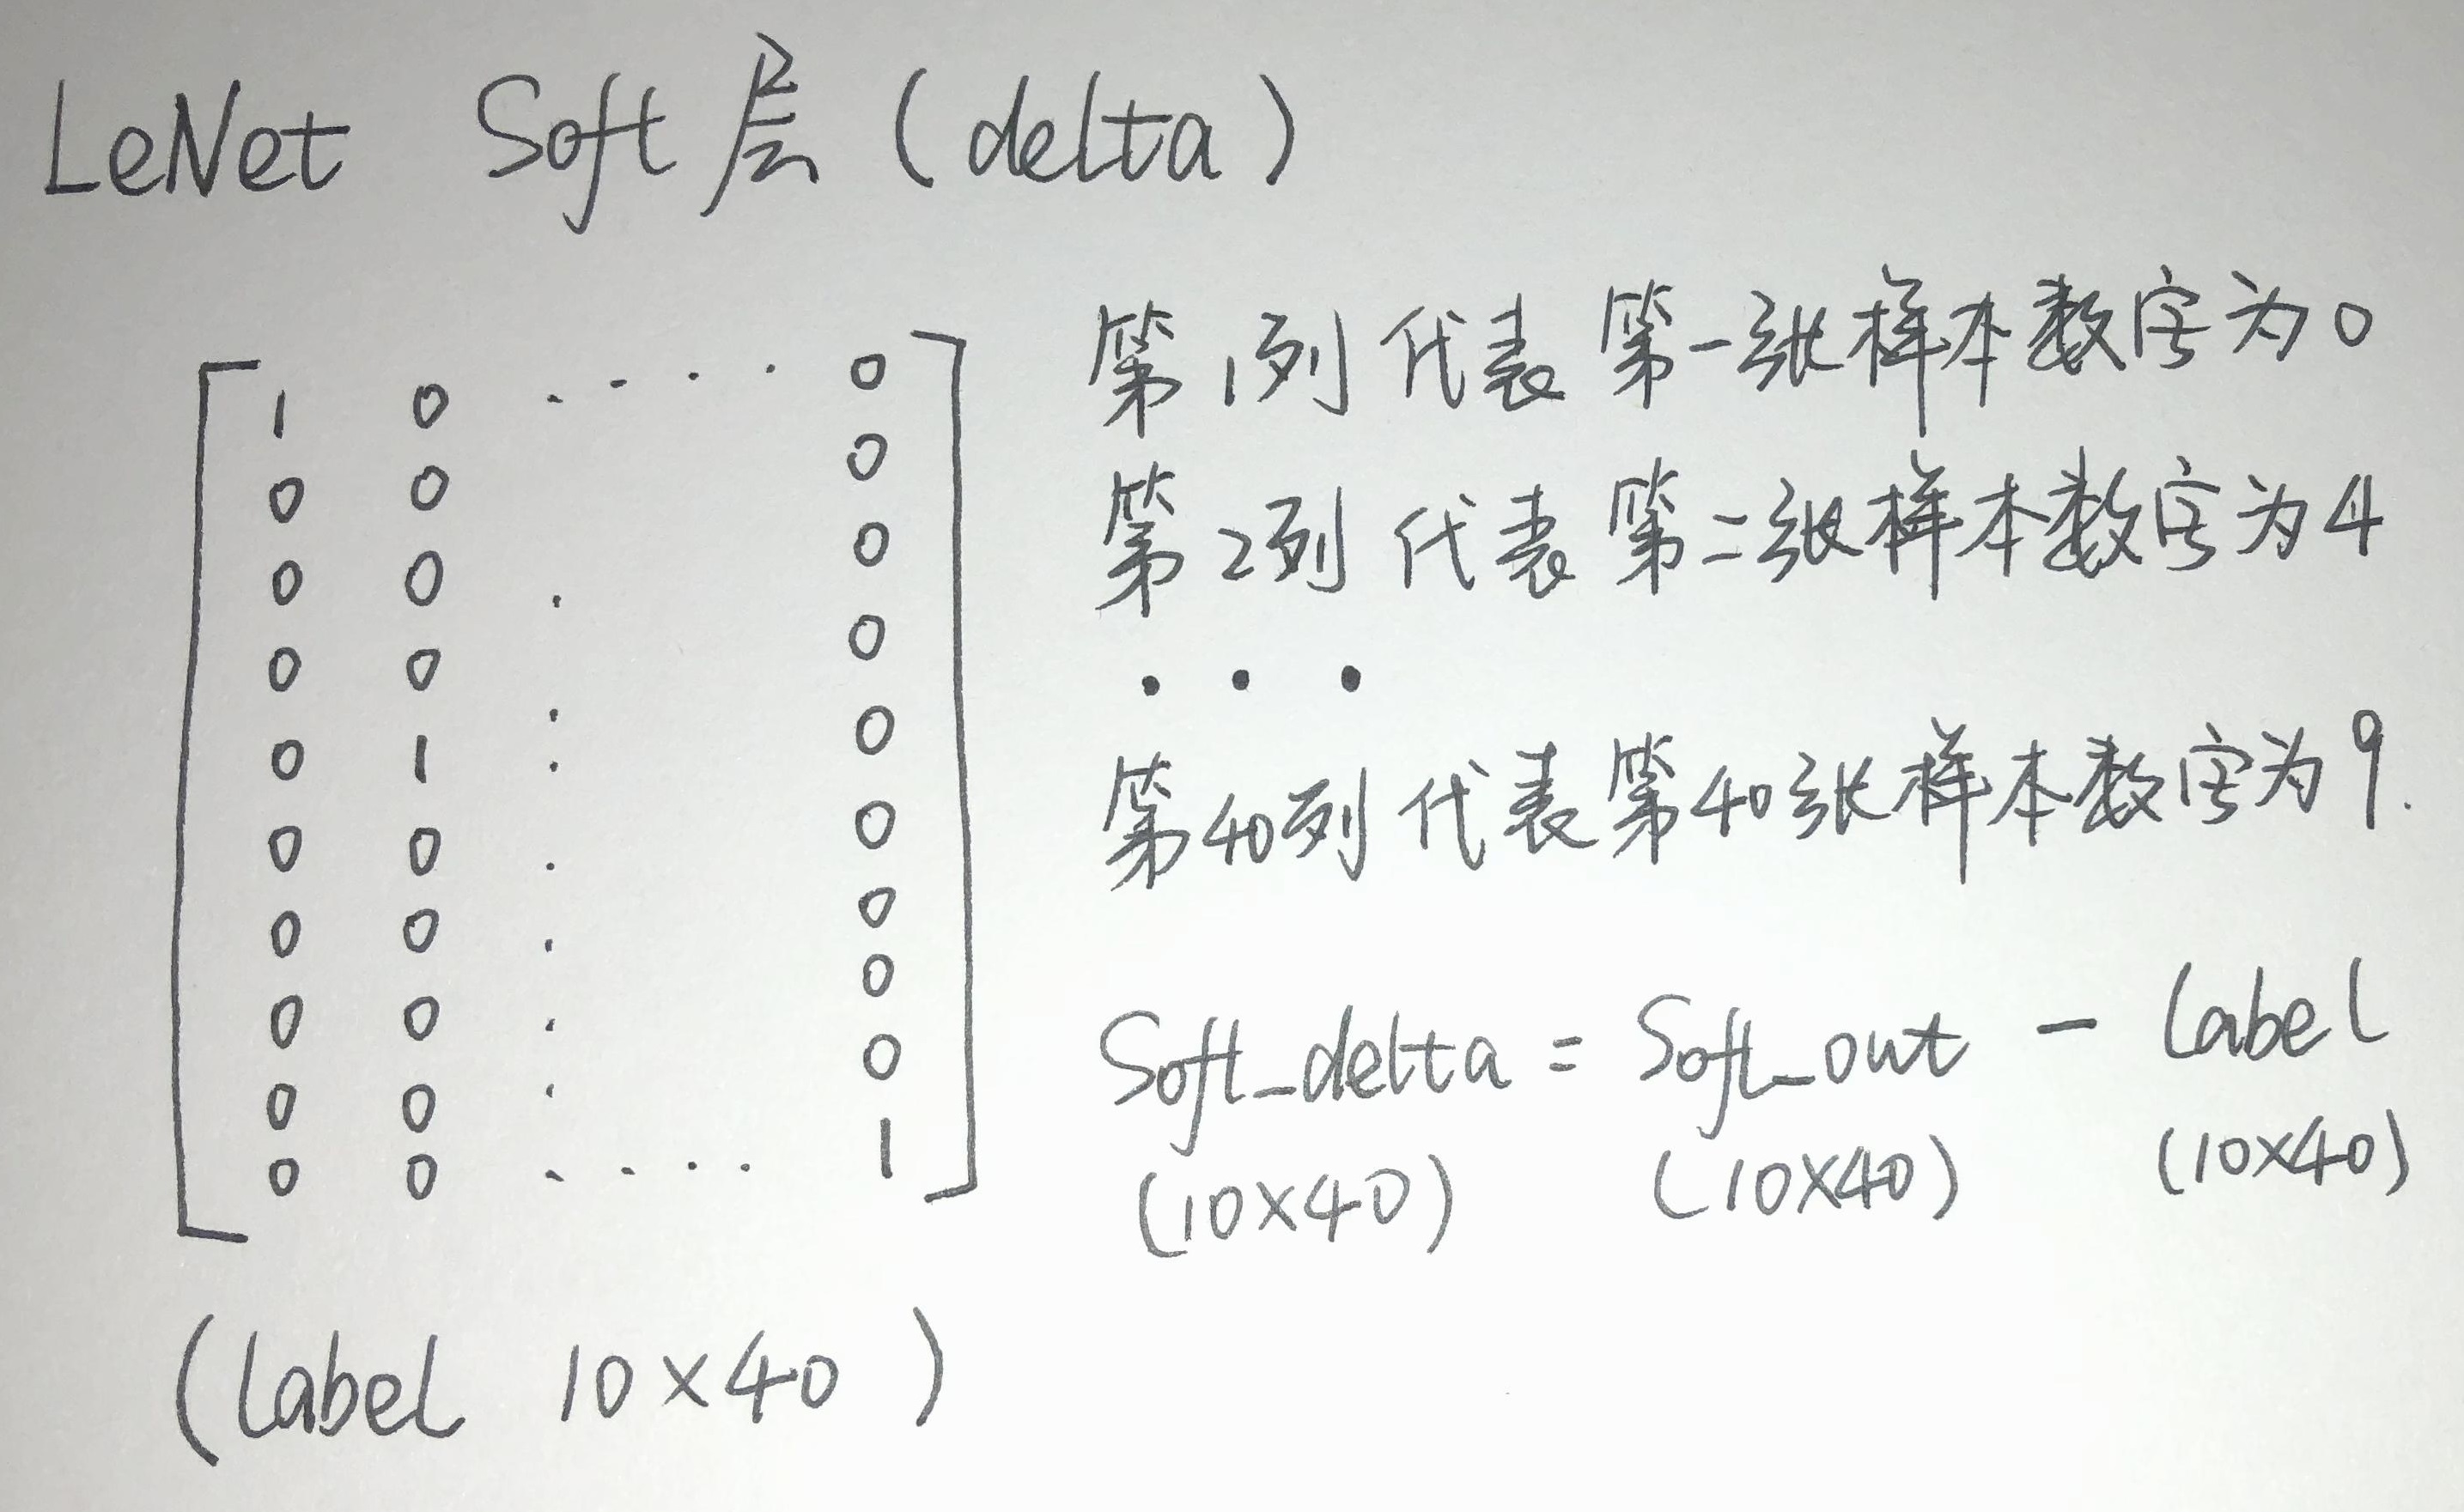 LeNet Soft层(delta)
1 0 .... 0
0 0 0
0 0 . 0
0 0 0
0 1 : 0
0 0 . 0
0 0 . 0
0 0 . 0
0 0 . 0
0 0 .... 1
(label 10×40)
第1列 代表 第一张样本数字为0
第2列 代表 第二张样本数字为4
...
第40列 代表 第40张样本数字为9.
Soft_delta = Soft_out - label
(10×40) (10×40) (10×40)